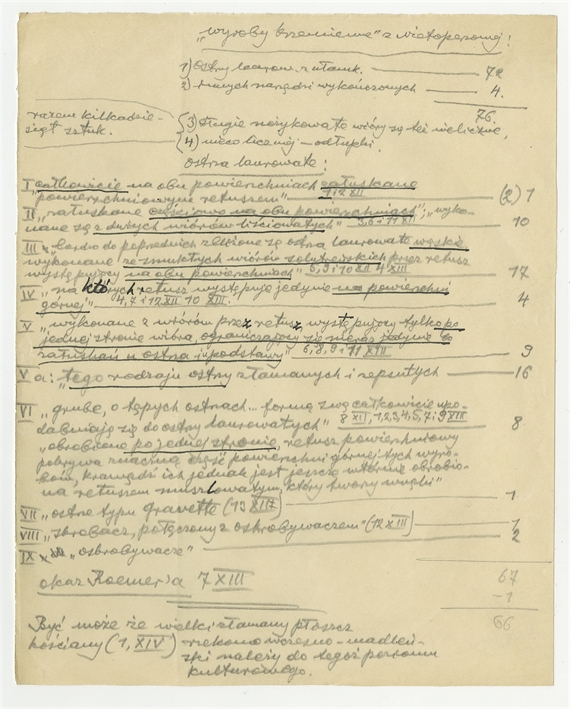 "wyroby krzemienne" z Nietoperzowej!
1) Ostrzy laurow. z ułamk. — 72
2) Innych narzędzi wykończonych — 4.
76.
razem kilkadzie-
siąt sztuk.
3) długie nożykowate wióry są też nieliczne,
4) nieco liczniej – odłupki.
Ostrza laurowate:
I "całkowicie na obu powierzchniach załuskane
powierzchniowym retuszem" 1 i 2 XII — (2) 1
II "załuskane częściowo na obu powierzchniach"; "wyko-
nane są z dużych wiórów liściowatych" 3, 6 i 11 XI — 10
III "bardzo do poprzednich zbliżone są ostrza laurowate wąskie
wykonane ze smukłych wiórów solutrejskich przez retusz
występujący na obu powierzchniach" 5, 9 i 10 XII 4 XIII — 17
IV "na których retusz występuje jedynie na powierzchni
górnej" 4, 7 i 12 XII 10 XIII. — 4
V "wykonane z wiórów przez retusz, występujący tylko po
jednej stronie wióra, ograniczający się nieraz jedynie do
załuskań u ostrza i podstawy" 6, 8, 9 i 11 XIII — 9
V a: "tego rodzaju ostrzy złamanych i zepsutych — 16
VI "grube, o tępych ostrzach... formą swą całkowicie upo-
dabniają się do ostrzy laurowatych" 8 XII, 1, 2, 3, 4, 5, 7 i 9 XIII — 8
"obrobione po jednej stronie, retusz powierzchniowy
pokrywa znaczną część powierzchni górnej tych wyro-
bów, krawędzi ich jednak jest jeszcze wtórnie obrobio-
na retuszem muszlowatym, który tworzy wnęki"
VII "ostrze typu Gravette (13 XIII) — 1
VIII "skrobacz, połączony z oskrobywaczem" (12 XIII) — 1
IX "oskrobywacze" — 2
okaz Roemer'a 7 XIII
67
-1
66
Być może że wielki złamany płoszcz
kościany (1, XIV) rzekomo wczesno-madleń-
ski należy do tegoż poziomu
kulturowego.